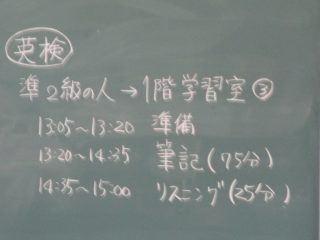 英検
準2級の人→1階学習室③
13:05~13:20 準備
13:20~14:35 筆記(75分)
14:35~15:00 リスニング(25分)